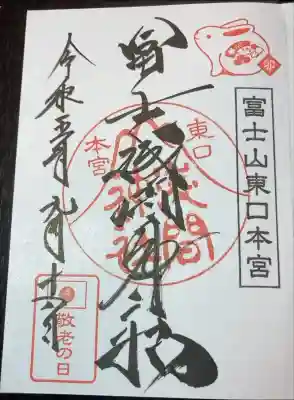 卯
富士山東口本宮
東口
本宮
冨士浅間神社
令和五年九月十八日
敬老の日